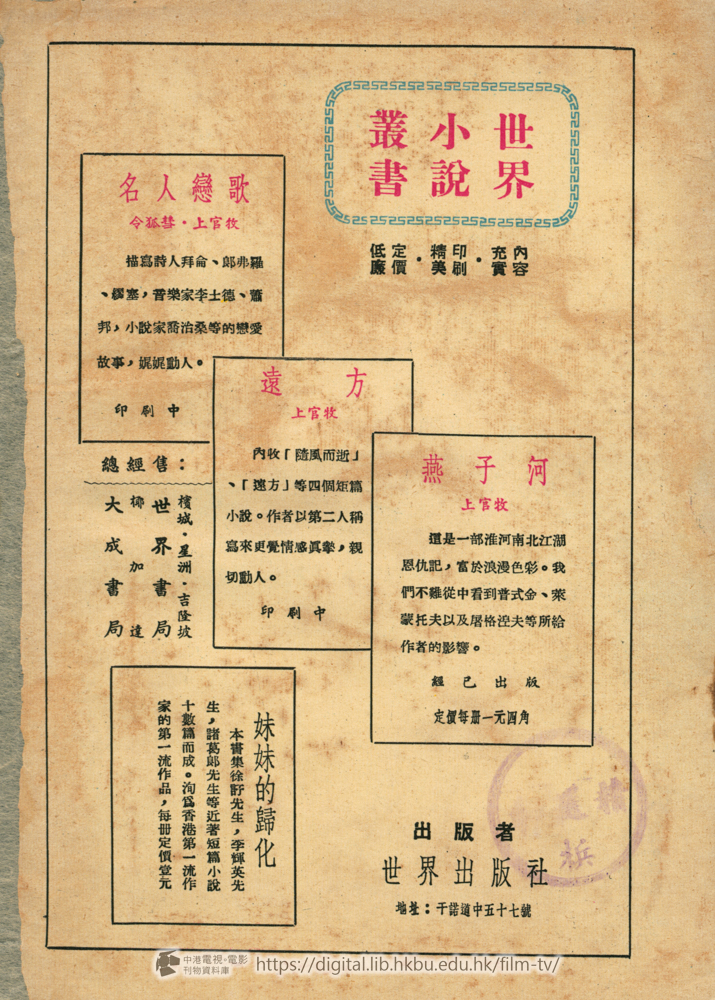 世界
小說
叢書
內容充實・印刷精美・定價低廉
名人戀歌
令狐彗・上官牧
描寫詩人拜侖、郎弗羅
、繆塞，音樂家李士德、蕭
邦，小說家喬治桑等的戀愛
故事，娓娓動人。
印刷中
遠方
上官牧
內收「隨風而逝」
、「遠方」等四個短篇
小說。作者以第二人稱
寫來更覺情感眞摯，親
切動人。
印刷中
燕子河
上官牧
這是一部淮河南北江湖
恩仇記，富於浪漫色彩。我
們不難從中看到普式金、萊
蒙托夫以及屠格湼夫等所給
作者的影響。
經已出版
定價每册一元四角
總經售：
檳城・星洲・吉隆坡
世界書局
椰加達
大成書局
妹妹的歸化
本書集徐訏先生，李輝英先
生，諸葛郎先生等近著短篇小說
十數篇而成。洵爲香港第一流作
家的第一流作品，每冊定價壹元
出版者
世界出版社
地址：干諾道中五十七號
中港電視・電影
刊物資料庫
https://digital.lib.hkbu.edu.hk/film-tv/